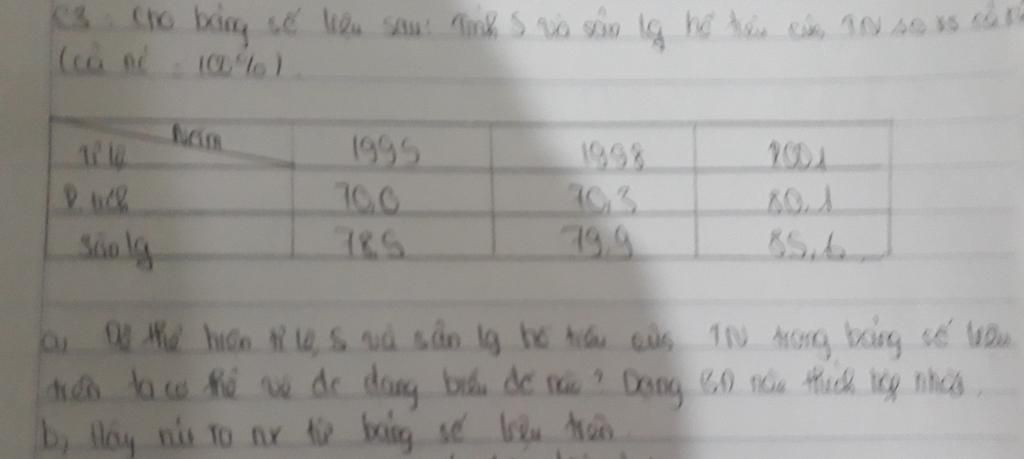 C3. Cho bảng số liệu sau: Tính S và sản lg hồ tiêu của TN so vs cả
(cả nc = 100%).
Năm
Tỉ lệ 1995 1998 2001
D. tích 70,0 70,3 80,1
Sản lg 78,5 79,9 85,6
a, Để thể hiện tỉ lệ, S và sản lg hồ tiêu của TN trong bảng số liệu
trên ta có thể vẽ dc dạng biểu đồ nào? Dạng BĐ nào thích hợp nhất.
b, Hãy rút ra nx từ bảng số liệu trên.